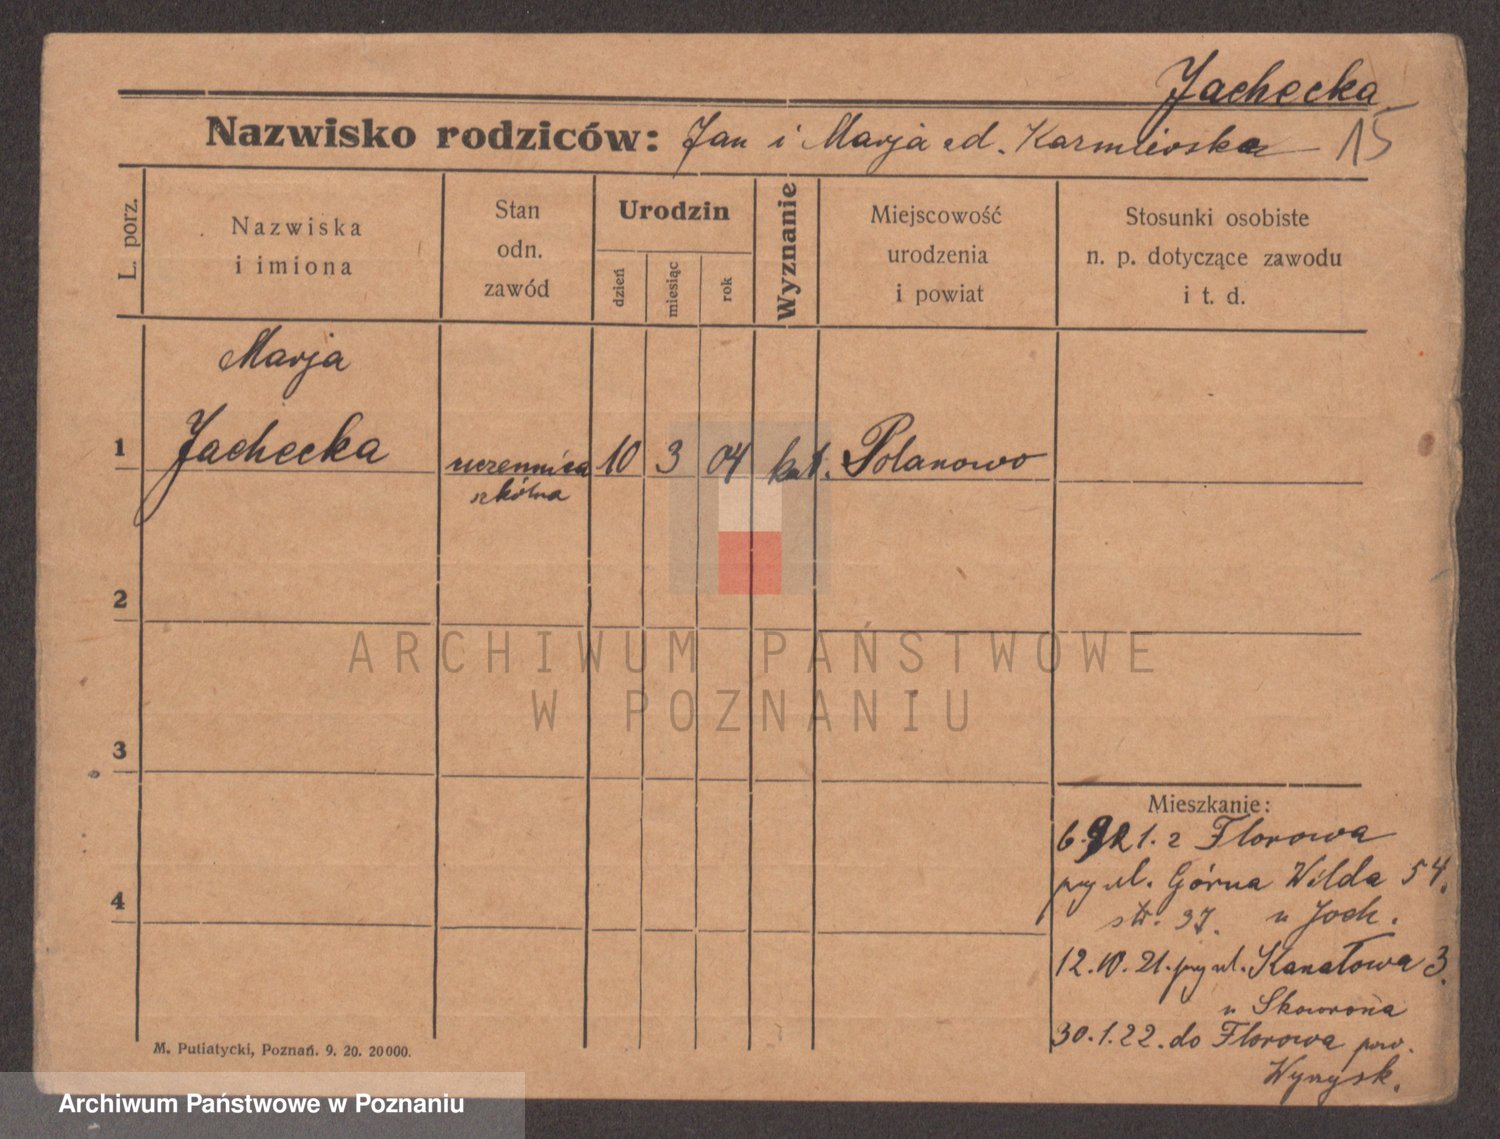 Jachecka
Nazwisko rodziców: Jan i Marja 15
L. porz.
Nazwiska
i imiona
Stan
odn.
zawód
Urodzin
dzień
miesiąc
rok
Wyznanie
Miejscowość
urodzenia
i powiat
Stosunki osobiste
n. p. dotyczące zawodu
i t. d.
Marja
1 Jachecka uczennica 10 3 04 kat. Polanowo
szkólna
2
ARCHIWUM PAŃSTWOWE
W POZNANIU
3
4
Mieszkanie:
6.9.21. z Florowa
przy ul. Górna Wilda 54.
str. 37. u Joch.
12.10.21. przy ul. Kanałowa 3.
u Skowrona
30.1.22. do Florowa pow.
Wyrzysk.
M. Putiatycki, Poznań. 9. 20. 20000.
Archiwum Państwowe w Poznaniu